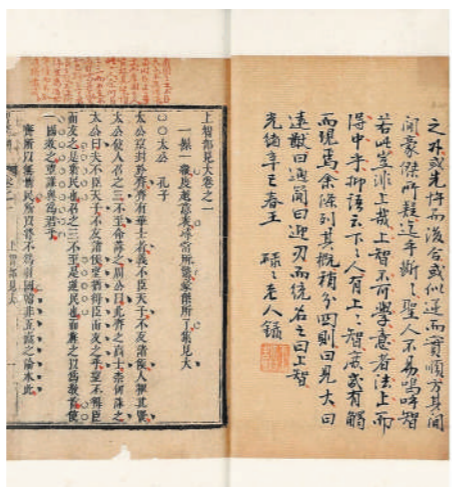 之外或先忤而後合或似逆而實順方其閒
閒豪傑所疑迄乎斷々聖人不易嗚呼智
若此豈非上哉上智不可學意者法上而
得中乎抑語云下々人有上々智庶或有觸
而現焉余條列其概稍分四則曰見大曰
遠猷曰通簡曰迎刃而統名之曰上智
光緒辛巳春王 碌々老人錄
上智部見大卷之一
一操一縱度越意表尋常所驚豪傑所了集見大
○○太公 孔子
太公望封於齊齊有華士者義不臣天子不友諸侯人稱其賢
太公使人召之三不至命誅之周公曰此齊之高士柰何誅之
太公曰夫不臣天子不友諸侯望猶得臣而友之乎望不得臣
而友之是棄民也召之三不至是逆民也而旌之以爲教首使
一國效之望誰與爲君乎
齊所以無惰民所以終不爲弱國韓非五蠹之論本此
上智部見大 一